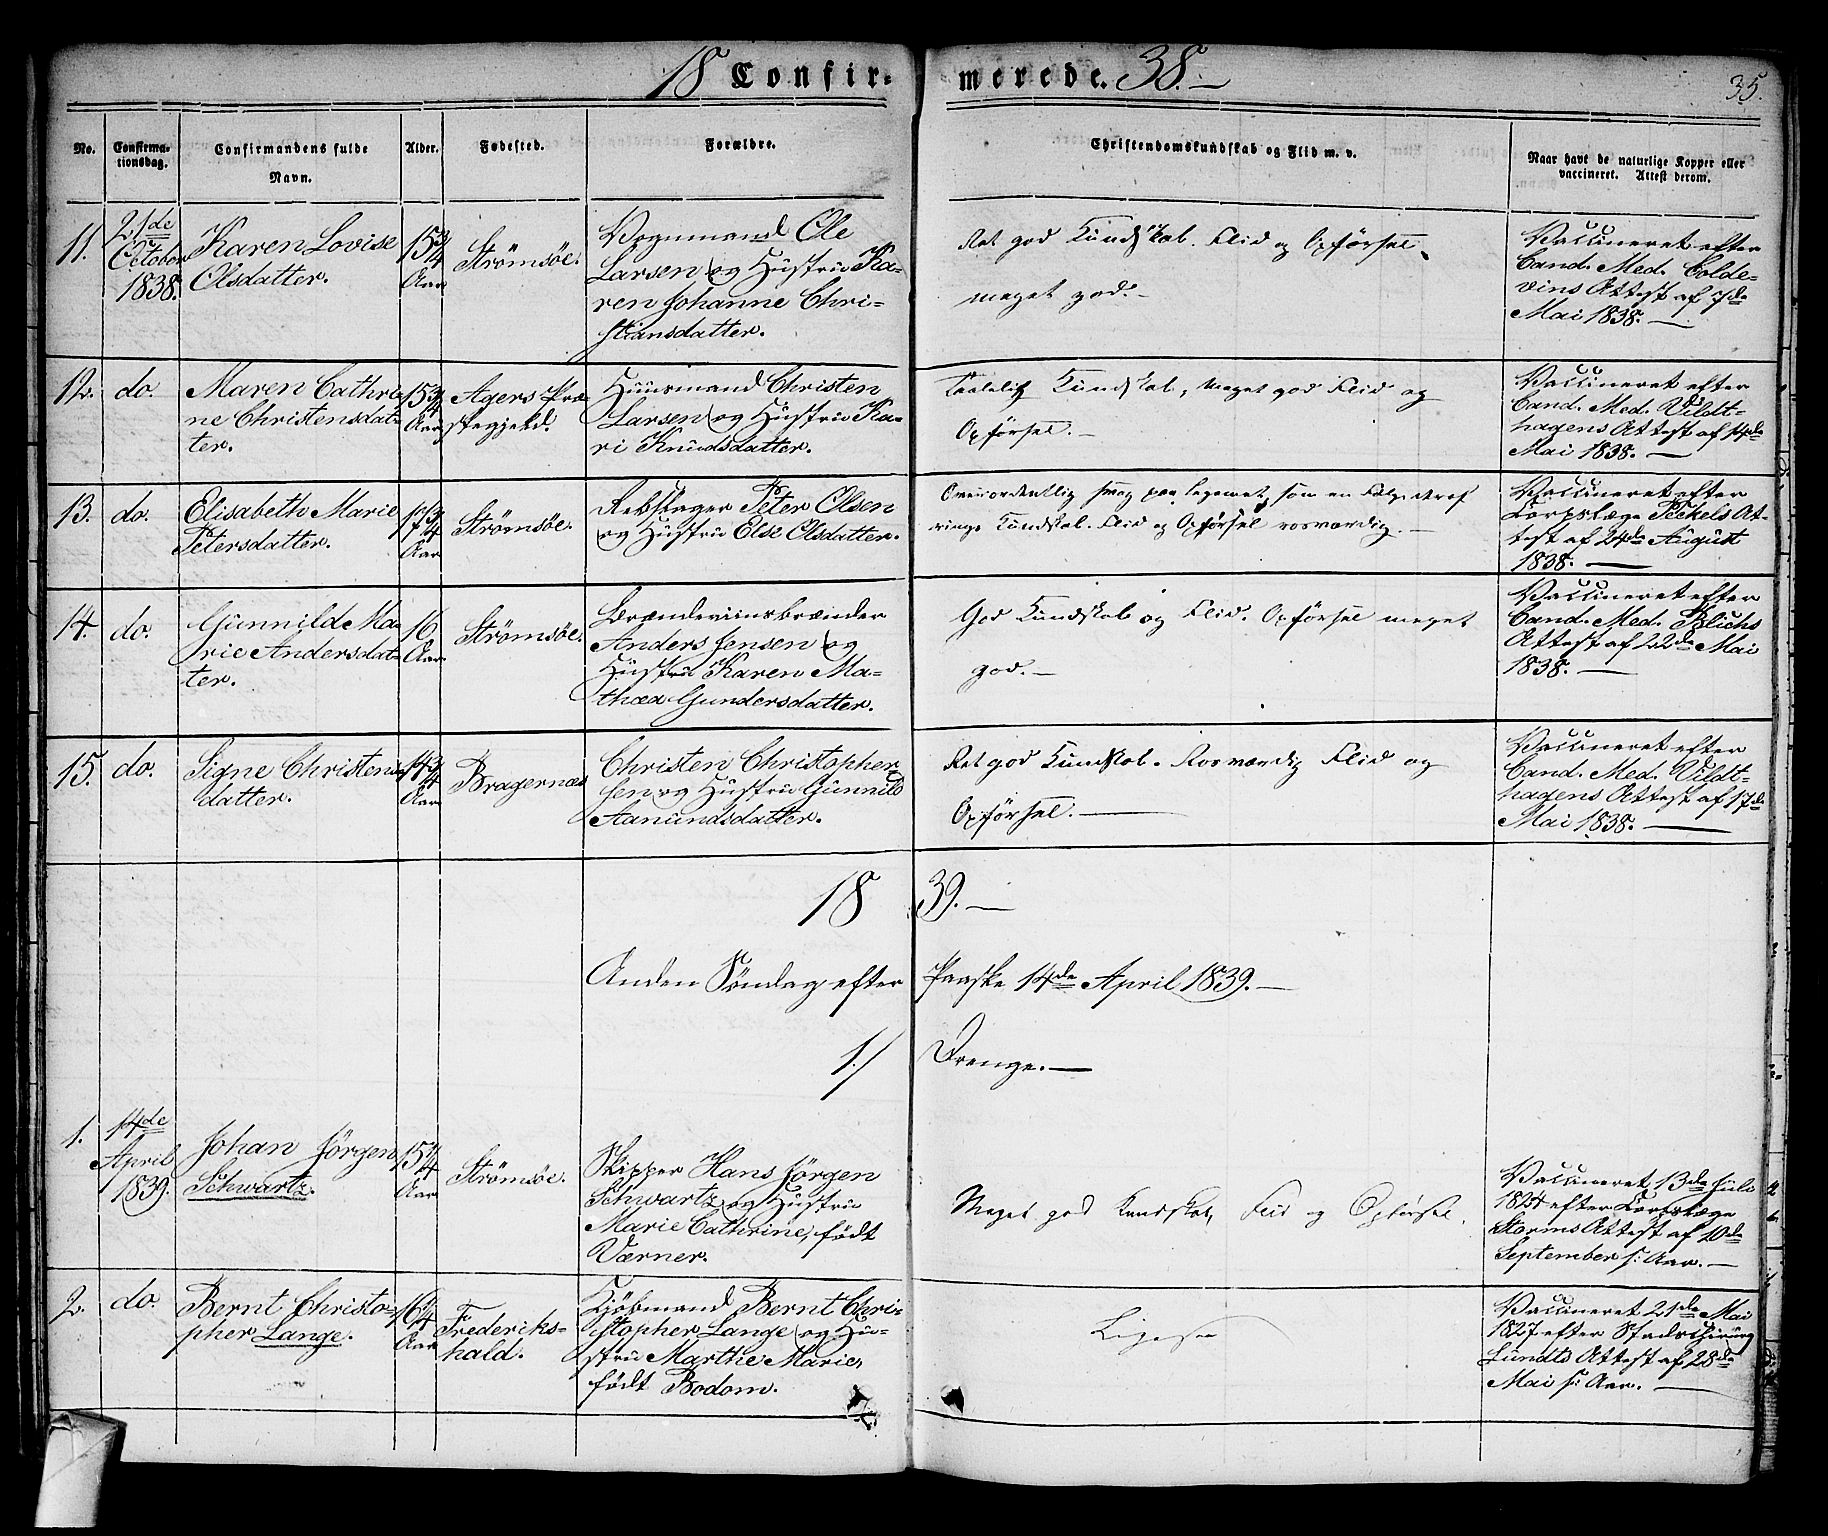 18 Confir= merede. 38. —
35.
No.
Confirma-
tionsdag.
Confirmandens fulde
Navn.
Alder.
Fødested.
Forældre.
Christendomskundskab og Flid m. v.
Naar havt de naturlige Kopper eller
vaccineret. Attest derom.
11.
21de
October
1838.
Karen Lovise
Olsdatter.
15 3/4
Aar
Strömsöe.
Vognmand Ole
Larsen og Hustru Ka-
ren Johanne Chri-
stiansdatter.
Ret god Kundskab. Flid og Opförsel
meget god. —
Vaccineret efter
Cand. Med. Colde-
vins Attest af 7de
Mai 1838. —
12.
do.
Maren Cathri-
ne Christensdat-
ter.
15 3/4
Aar
Agers Præ-
stegjeld.
Huusmand Christen
Larsen og Hustru Ka-
ri Knudsdatter.
Taalelig Kundskab, meget god Flid og
Opförsel. —
Vaccineret efter
Cand. Med. Vildt-
hagens Attest af 14de
Mai 1838. —
13.
do.
Elisabeth Marie
Petersdatter.
17 3/4
Aar
Strömsöe.
Rebslager Peter Olsen
og Hustru Else Olsdatter.
Overordentlig svag paa Legemet, som en Fölge deraf
ringe Kundskab. Flid og Opförsel rosværdig. —
Vaccineret efter
Corpslæge Peckels At-
test af 24de August
1838. —
14.
do.
Gunnilde Ma-
rie Andersdat-
ter.
16
Aar
Strömsöe.
Brændeviinsbrænder
Anders Jensen og
Hustru Karen Ma-
thea Gundersdatter.
God Kundskab og Flid. Opförsel meget
god. —
Vaccineret efter
Cand. Med. Blichs
Attest af 22de Mai
1838. —
15.
do.
Signe Christens-
datter.
14 3/4
Aar
Bragernæs
Christen Christopher-
sen og Hustru Gunnild
Aanundsdatter.
Ret god Kundskab. Rosværdig Flid og
Opförsel. —
Vaccineret efter
Cand. Med. Vildt-
hagens Attest af 17de
Mai 1838. —
18 39. —
Anden Söndag efter Paaske 14de April 1839. —
1./ Drenge. —
1.
14de
April
1839.
Johan Jörgen
Schwartz.
15 1/4
Aar
Strömsöe.
Skipper Hans Jörgen
Schwartz og Hustru
Marie Cathrine, födt
Værner.
Meget god Kundskab, Flid og Opförsel.
Vaccineret 13de Juli
1824 efter Corpslæge
Storms Attest af 10de
September s: Aar. —
2.
do.
Bernt Christo-
pher Lange.
16 1/4
Aar
Frederiks-
hald.
Kjöbmand Bernt Chri-
stopher Lange og Hu-
stru Marthe Marie,
födt Bodom.
Ligesaa
Vaccineret 21de Mai
1827 efter Stadschirurg
Lundts Attest af 28de
Mai s: Aar. —